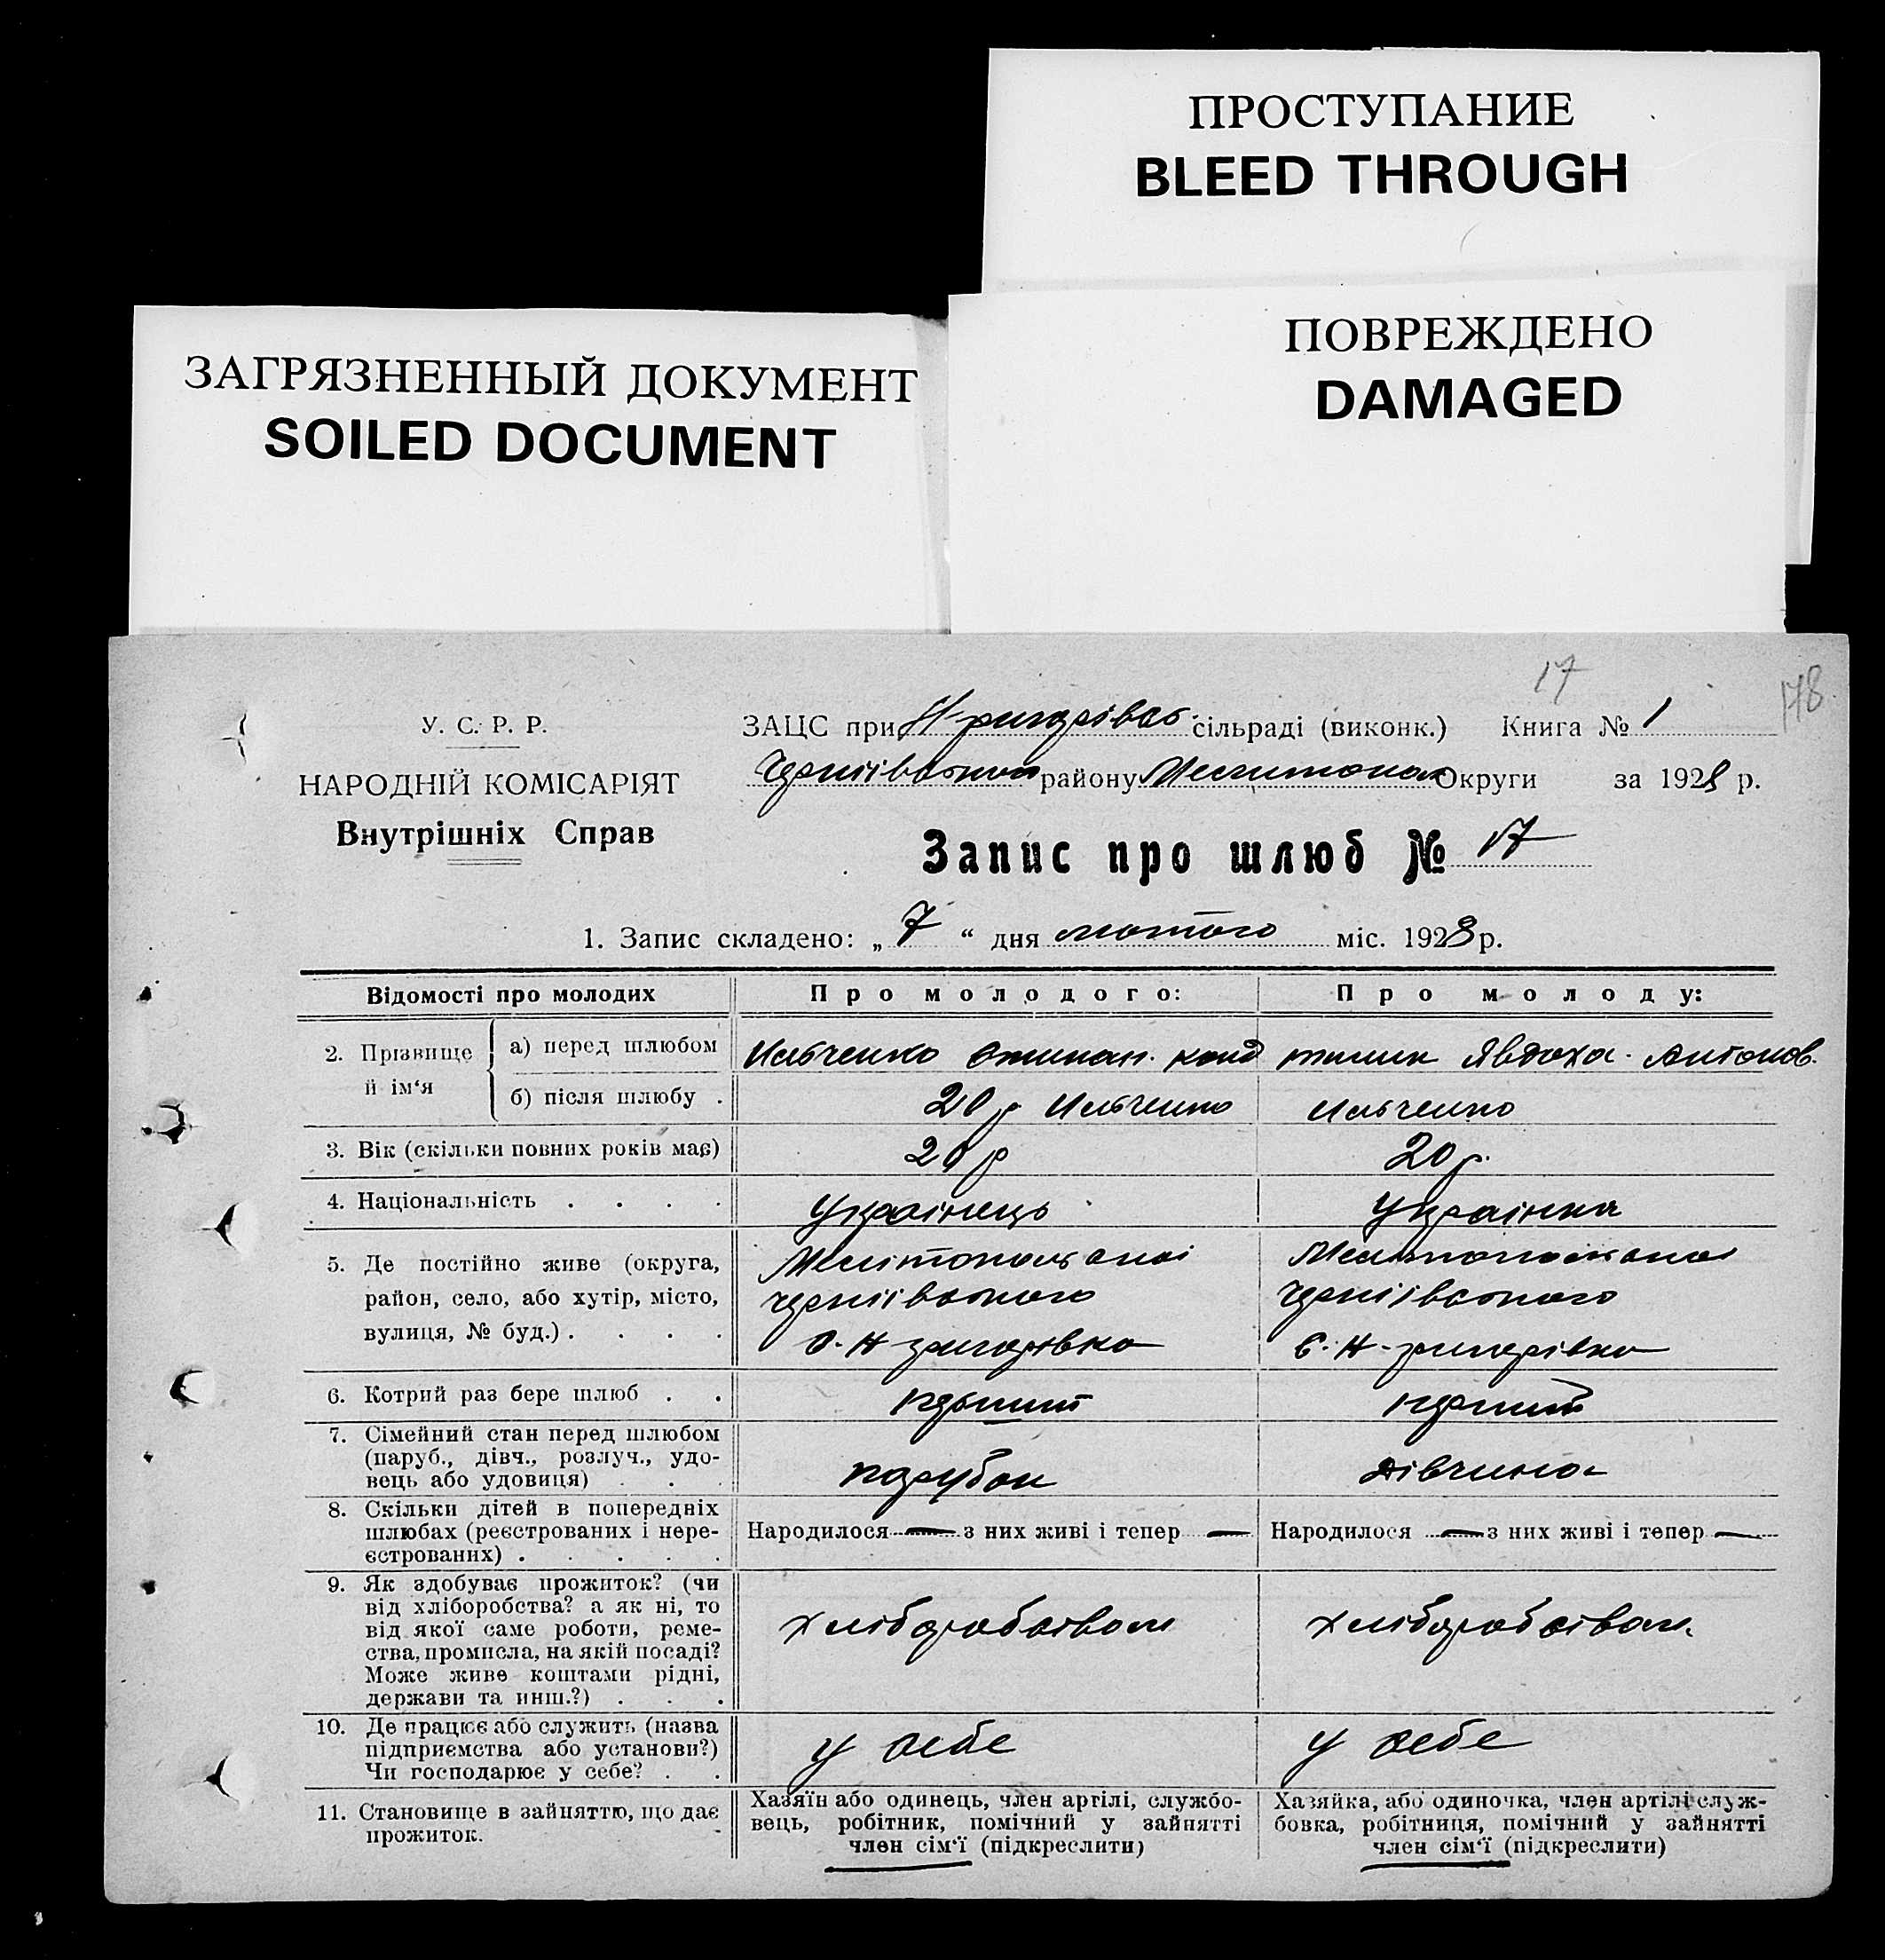 ПРОСТУПАНИЕ
BLEED THROUGH
ПОВРЕЖДЕНО
DAMAGED
ЗАГРЯЗНЕННЫЙ ДОКУМЕНТ
SOILED DOCUMENT
17
178
У. С. Р. Р.
НАРОДНІЙ КОМІСАРІЯТ
Внутрішніх Справ
ЗАЦС при Н-григорівс. сільраді (виконк.) Книга № 1
району Округи за 1928 р.
Запис про шлюб № 17
1. Запис складено: „ 7 “ дня лютого міс. 1928 р.
Відомості про молодих
Про молодого:
Про молоду:
2. Прізвище й ім‘я
а) перед шлюбом
Ильченко Степан. Явдоха. Антонов.
б) після шлюбу .
20 р Ильченко
Ильченко
3. Вік (скільки повних років має)
20 р
20 р.
4. Національність . . . .
Українець
Українка
5. Де постійно живе (округа,
район, село, або хутір, місто,
вулиця, № буд.) . . . .
Мелітопольскоі
Черніівського
с. Н-григорівка
Мелітопольскоі
Черніівського
с. Н-григорівка
6. Котрий раз бере шлюб . .
перший
перший
7. Сімейний стан перед шлюбом
(паруб., дівч., розлуч., удо-
вець або удовиця) . . .
парубок
дівчина
8. Скільки дітей в попередніх
шлюбах (реєстрованих і нере-
єстрованих) . . . . .
Народилося — з них живі і тепер —
Народилося — з них живі і тепер —
9. Як здобуває прожиток? (чи
від хліборобства? а як ні, то
від якої саме роботи, реме-
ства, промисла, на якій посаді?
Може живе коштами рідні,
держави та инш.?) . . .
хліборобством
хліборобством.
10. Де працює або служить (назва
підприємства або установи?)
Чи господарює у себе? . .
у себе
у себе
11. Становище в зайняттю, що дає
прожиток.
Хазяїн або одинець, член артілі, службо-
вець, робітник, помічний у зайнятті
член сім‘ї (підкреслити)
Хазяйка, або одиночка, член артілі служ-
бовка, робітниця, помічний у зайнятті
член сім‘ї (підкреслити)